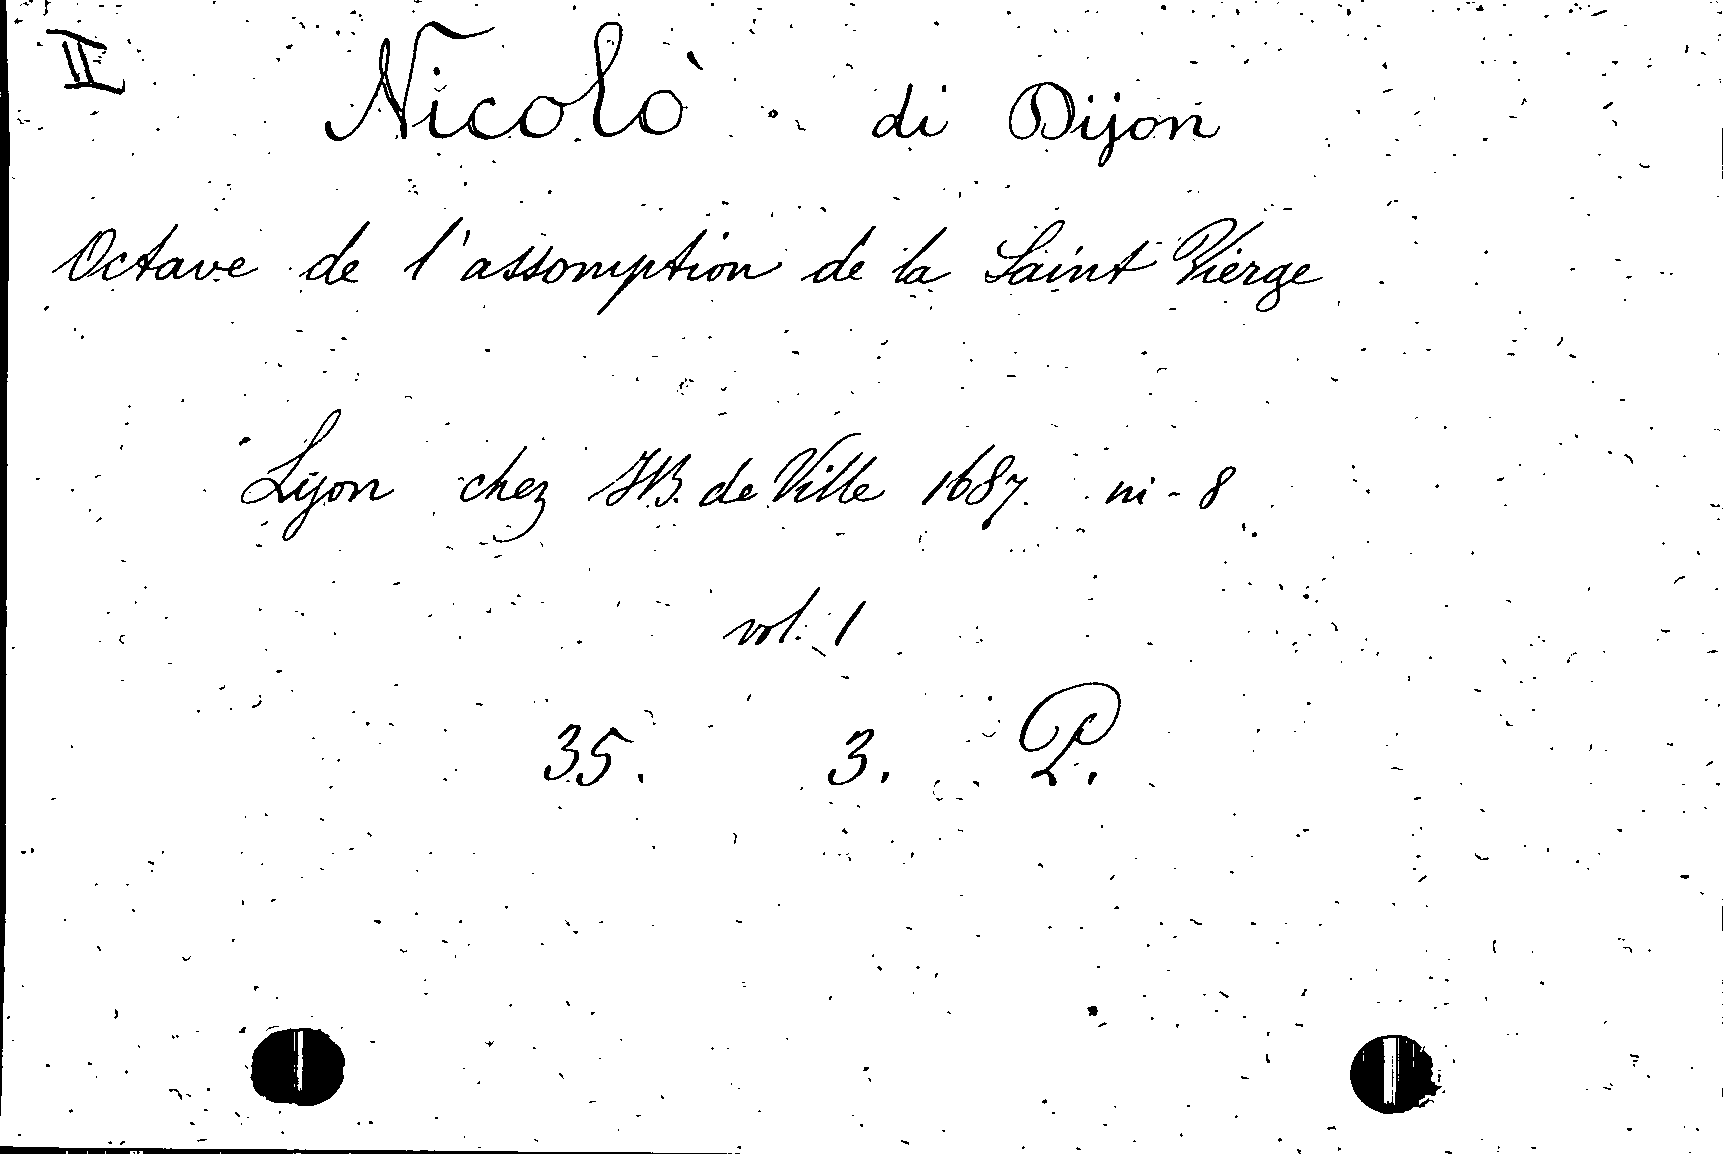 II
Nicolò di Dijon
Octave de l'assomption de la Saint Vierge
Lyon chez JB. de Ville 1687. in-8
vol. 1
35. 3. P.